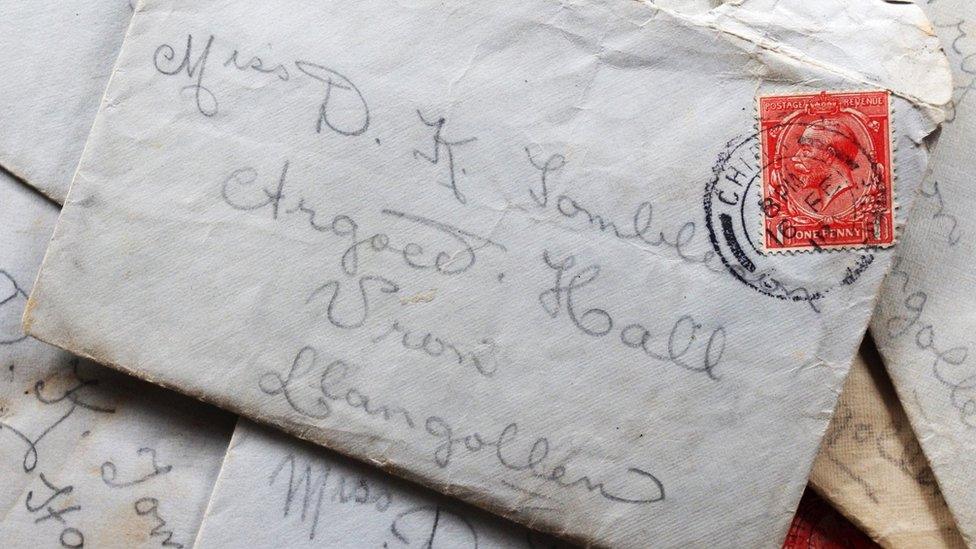 Miss D. K. Tombleson
Argoed. Hall
Vron
Llangollen
POSTAGE REVENUE
ONE PENNY
CHI
Miss D